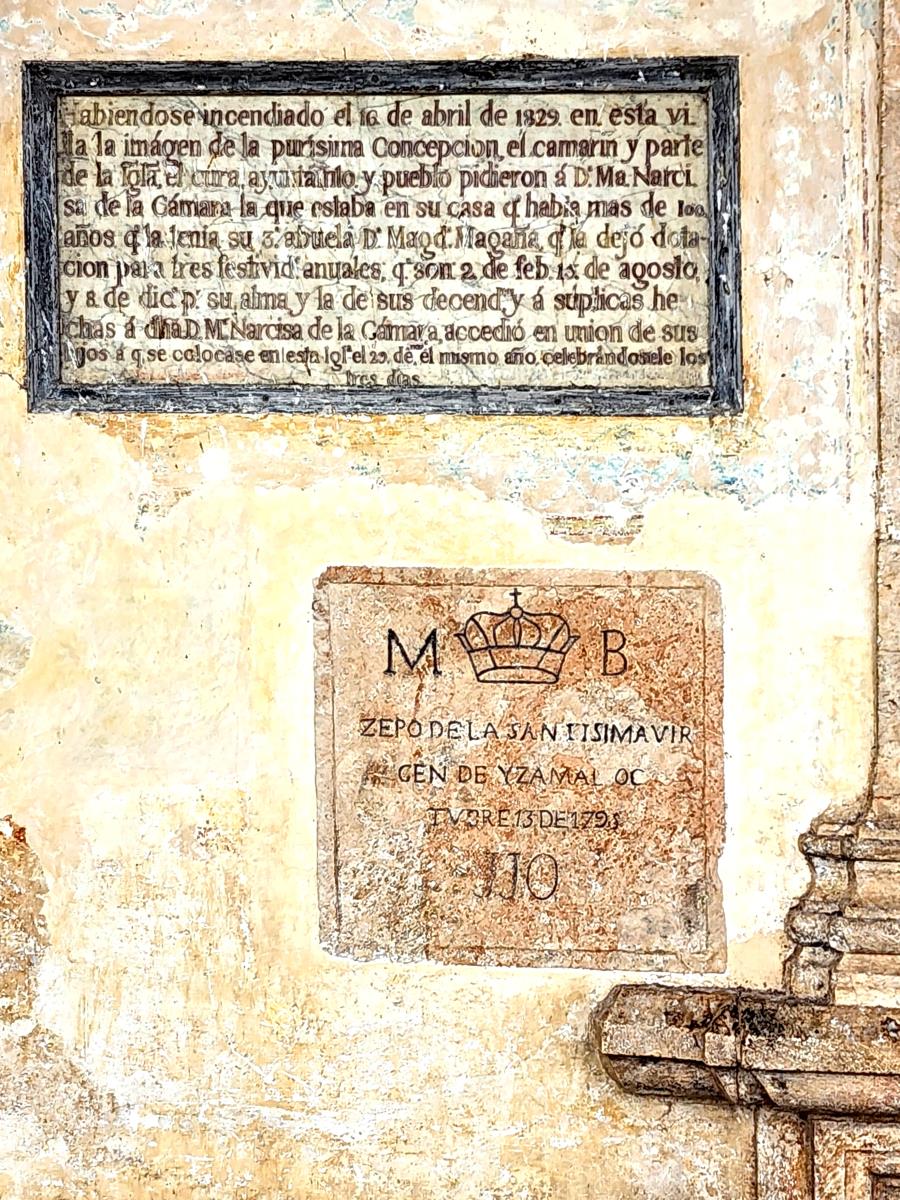 Habiendose incendiado el 16 de abril de 1829 en esta vi
lla la imágen de la purisima Concepcion, el camarin y parte
de la Iglã, el cura, ayuntamto y pueblo pidieron á Dª Ma. Narci
sa de la Cámara la que estaba en su casa q̃ habia mas de 100
años q̃ la tenia su 3ª abuela Dª Magdª Magaña, q̃ la dejó dota-
cion para tres festividˢ anuales, q̃ son 2 de feb. 15 de agosto,
y 8 de dicᵉ pʳ su alma y la de sus decendˢ y á súplicas he
chas á dha D. Mª Narcisa de la Cámara accedió en union de sus
hijos á q̃ se colocase en esta Iglª el 29 de el mismo año, celebrándosele los
tres dias
M B
ZEPO DE LA SANTISIMA VIR
GEN DE YZAMAL OC
TVBRE 13 DE 179
JJO